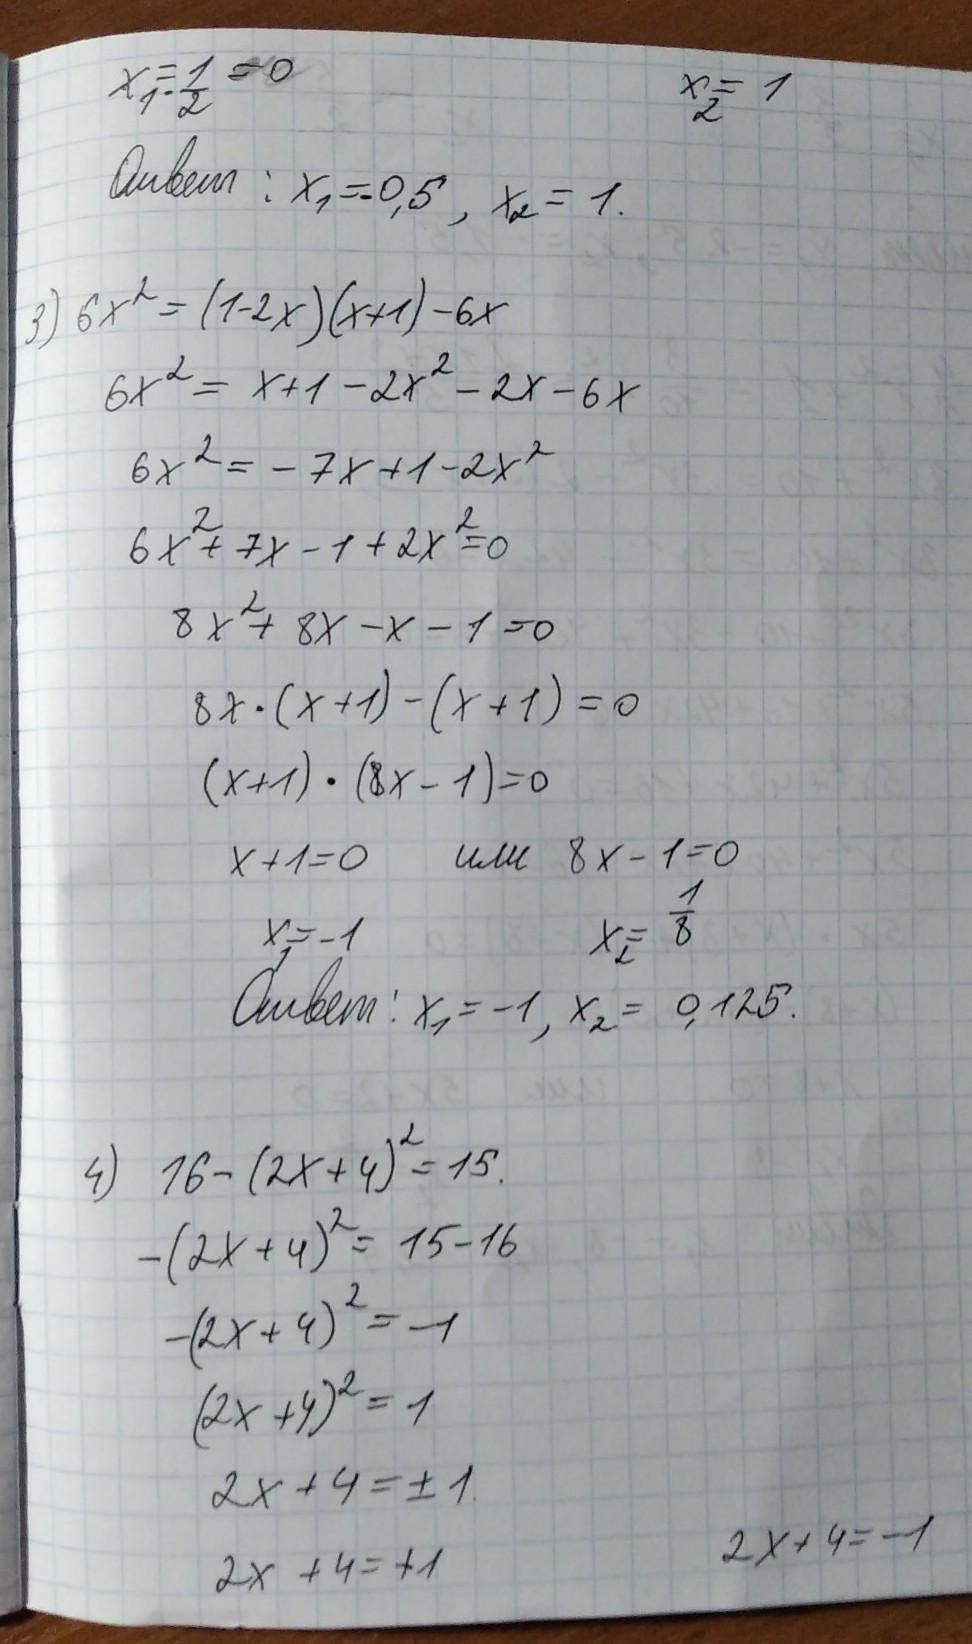 x₁ = -1/2 = 0 x₂ = 1
Ответ: x₁ = -0,5, x₂ = 1.
3) 6x² = (1-2x)(x+1) - 6x
6x² = x+1 - 2x² - 2x - 6x
6x² = - 7x+1 - 2x²
6x² + 7x - 1 + 2x² = 0
8x² + 8x - x - 1 = 0
8x · (x+1) - (x+1) = 0
(x+1) · (8x - 1) = 0
x+1=0 или 8x - 1=0
x₁ = -1 x₂ = 1/8
Ответ: x₁ = -1, x₂ = 0,125.
4) 16 - (2x+4)² = 15.
-(2x+4)² = 15-16
-(2x+4)² = -1
(2x+4)² = 1
2x+4 = ± 1.
2x+4 = +1 2x+4 = -1